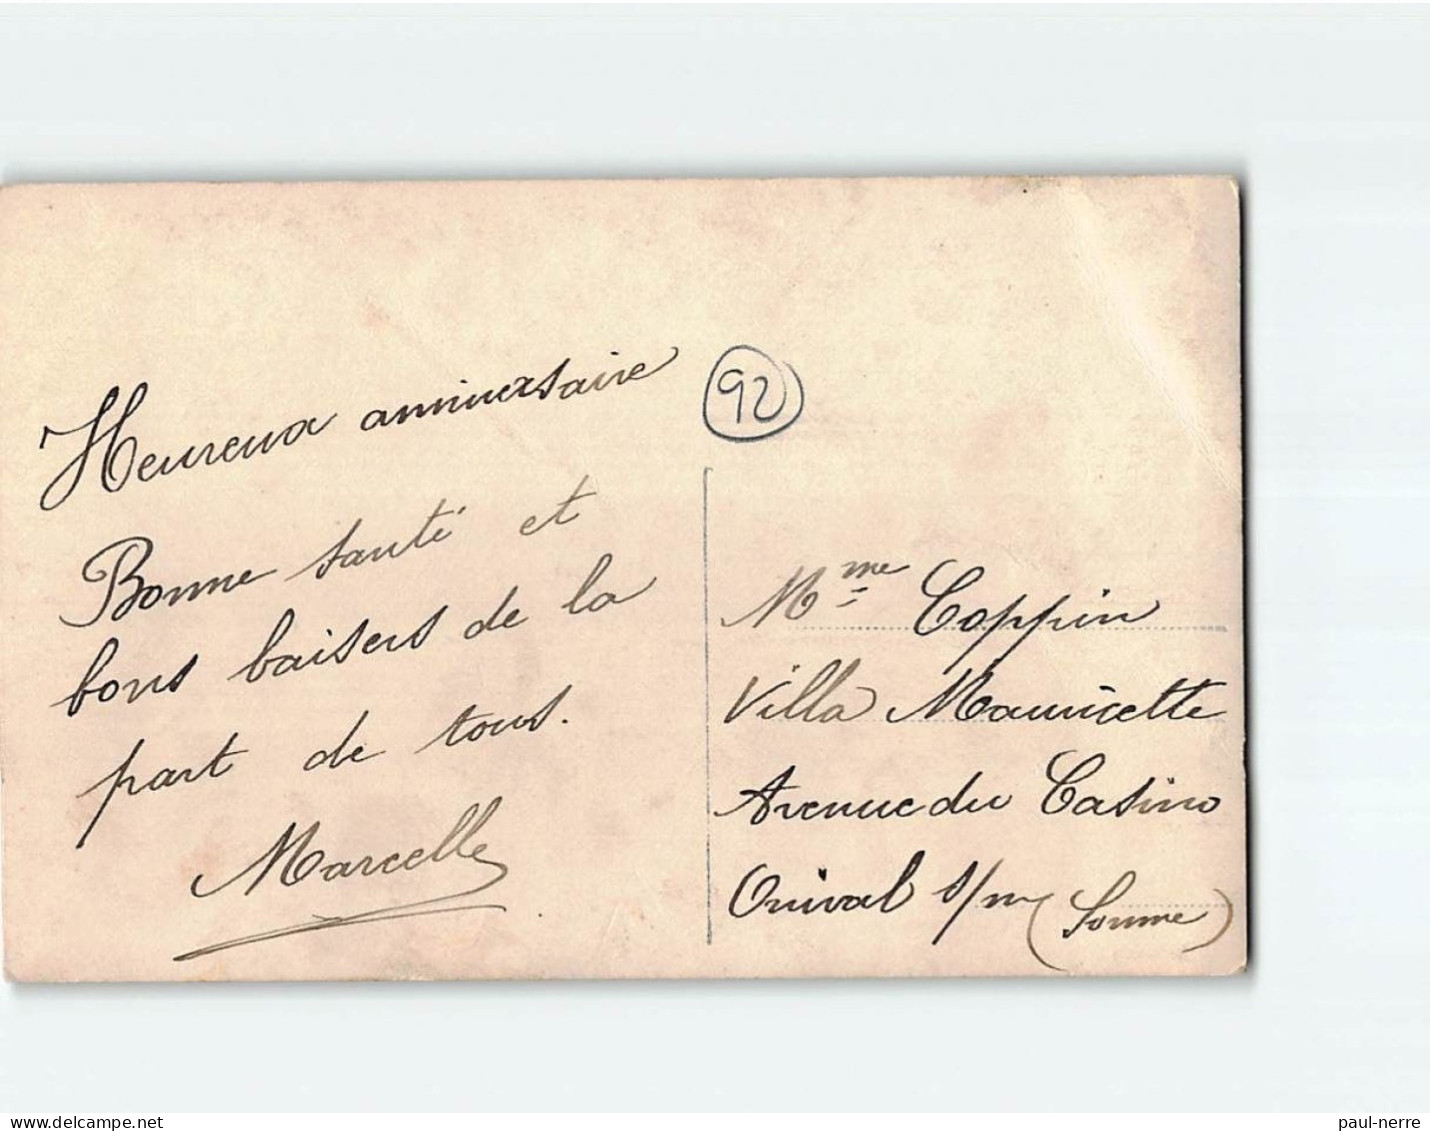 Heureux anniversaire
Bonne santé et
bons baisers de la
part de tous.
Marcelle
92
Mme Coppin
Villa Mauricette
Avenue du Casino
Onival s/m (Somme)
paul-nerre